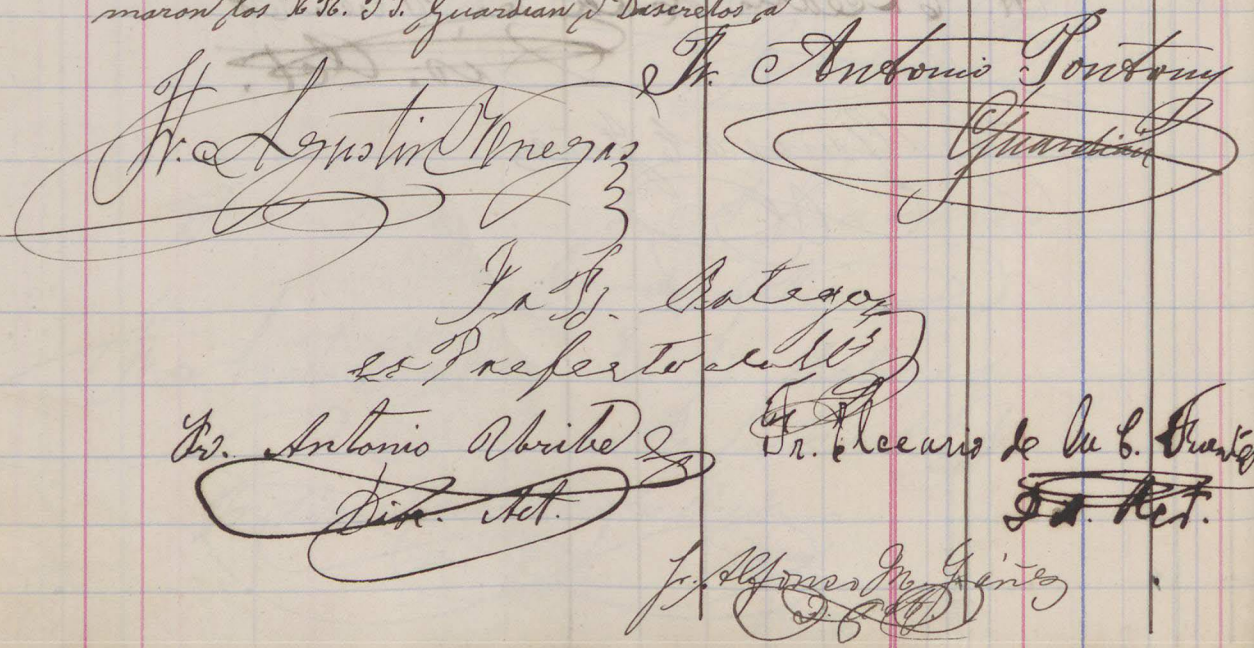 maron los R. R. P. P. Guardian y Discretos a
Fr. Antonio Pontony
Guardian
Fr. Agustin Venegas
Fr. Fr. Ortega
Ex Prefecto
Fr. Antonio Uribe
Disc. Act.
Fr. Elceario de la C. Fuentes
Act.
Fr. Alfonso M. Yáñez